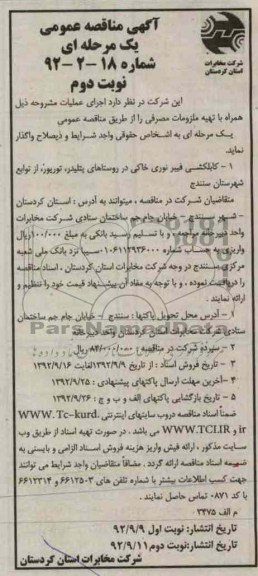 آگهی مناقصه عمومی
یک مرحله ای
شماره ۱۸-۲-۹۲
نوبت دوم
شرکت مخابرات
استان کردستان
این شرکت در نظر دارد اجرای عملیات مشروحه ذیل
همراه با تهیه ملزومات مصرفی را از طریق مناقصه عمومی
یک مرحله ای به اشخاص حقوقی واجد شرایط و ذیصلاح واگذار
نماید.
۱- کابلکشی فیبر نوری خاکی در روستاهای توریور، از توابع
شهرستان سنندج
متقاضیان شرکت در مناقصه، میتوانند به آدرس: استان کردستان
- شهر سنندج- خیابان جام جم ساختمان ستادی شرکت مخابرات
واحد دبیرخانه مراجعه، و با تسلیم رسید بانکی به مبلغ ۱۰۰/۰۰۰ ریال
واریزی به حساب شماره سیبا نزد بانک ملی شعبه
مرکزی سنندج در وجه شرکت مخابرات استان کردستان، اسناد مناقصه
را دریافت نموده، و با توجه به مفاد آن پیشنهاد قیمت خود را تنظیم و
ارائه نمایند.
۱- آدرس محل تحویل پاکتها: سنندج - خیابان جام جم ساختمان
ستادی شرکت مخابرات استان کردستان واحد دبیرخانه
۲- سپرده شرکت در مناقصه: ریال
۳- تاریخ فروش اسناد: از تاریخ ۱۳۹۲/۹/۹ لغایت ۱۳۹۲/۹/۱۶
۴- آخرین مهلت ارسال پاکتهای پیشنهادی: ۱۳۹۲/۹/۲۵
۵- تاریخ بازگشایی پاکتهای الف و ب و ج: ۱۳۹۲/۹/۲۶
ضمناً اسناد مناقصه دروب سایتهای اینترنتی WWW.Tc-kurd.
ir و WWW.TCI.IR می باشد. در صورت تهیه اسناد از طریق وب
سایت مذکور، ارائه فیش واریز هزینه فروش اسناد الزامی و بایستی به
ضمیمه اسناد مناقصه ارائه گردد. مضافاً متقاضیان واجد شرایط می توانند
جهت کسب اطلاعات بیشتر با شماره تلفن های ۶۶۱۲۵۰۳ و ۶۶۱۲۳۱۴
با کد ۰۸۷۱ تماس حاصل نمایند.
م الف ۳۴۷۵
تاریخ انتشار: نوبت اول ۹۲/۹/۹
تاریخ انتشار: نوبت دوم ۹۲/۹/۱۱
شرکت مخابرات استان کردستان